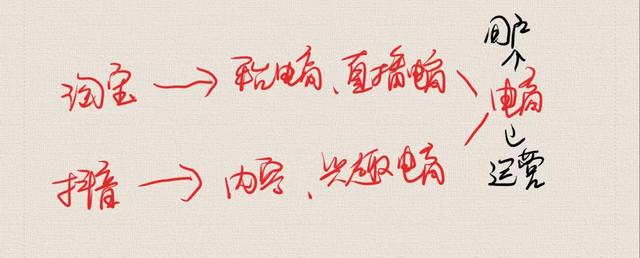 淘宝 → 平台电商、直播电商
抖音 → 内容、兴趣电商
用户
↑
电商
↓
运营